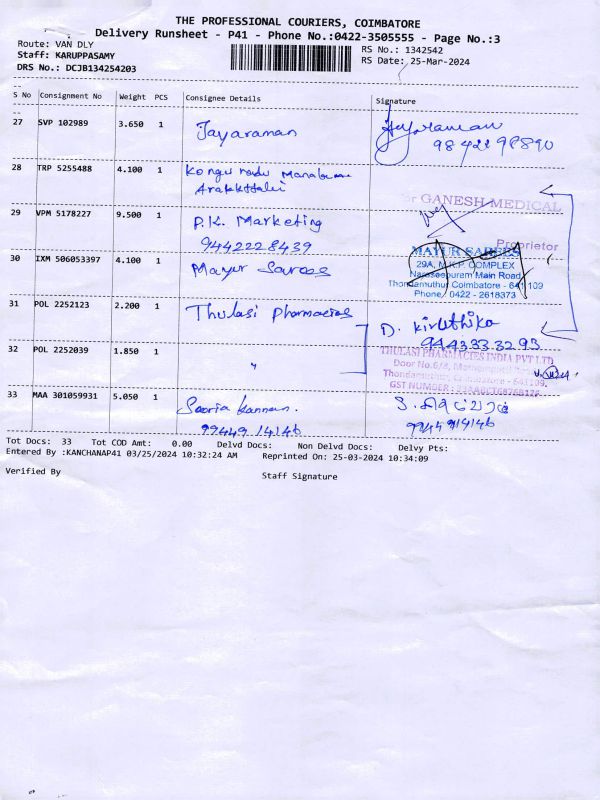 THE PROFESSIONAL COURIERS, COIMBATORE
Delivery Runsheet - P41 - Phone No.:0422-3505555 - Page No.:3
Route: VAN DLY
Staff: KARUPPASAMY
DRS No.: DCJB134254203
RS No.: 1342542
RS Date: 25-Mar-2024
S No Consignment No Weight PCS Consignee Details Signature
27 SVP 102989 3.650 1 Jayaraman Jayaraman
9842298890
28 TRP 5255488 4.100 1 Kongu nadu
for GANESH MEDICAL
29 VPM 5178227 9.500 1 P.K. Marketing
9442228439
Proprietor
30 IXM 506053397 4.100 1 Mayur Sarees
MAYUR SAREES
29A, M.K.P. COMPLEX
Naraseepuram Main Road
Thondamuthur, Coimbatore - 641 109
Phone: 0422 - 2618373
31 POL 2252123 2.200 1 Thulasi Pharmacies D. Kiruthika
9443333293
32 POL 2252039 1.850 1 "
THULASI PHARMACIES INDIA PVT LTD
Door No.6/8,
Thondamuthur, Coimbatore - 641109.
GST NUMBER :
33 MAA 301059931 5.050 1 Kannan.
99449 14146
99449 14146
Tot Docs: 33 Tot COD Amt: 0.00 Delvd Docs: Non Delvd Docs: Delvy Pts:
Entered By :KANCHANAP41 03/25/2024 10:32:24 AM Reprinted On: 25-03-2024 10:34:09
Verified By Staff Signature